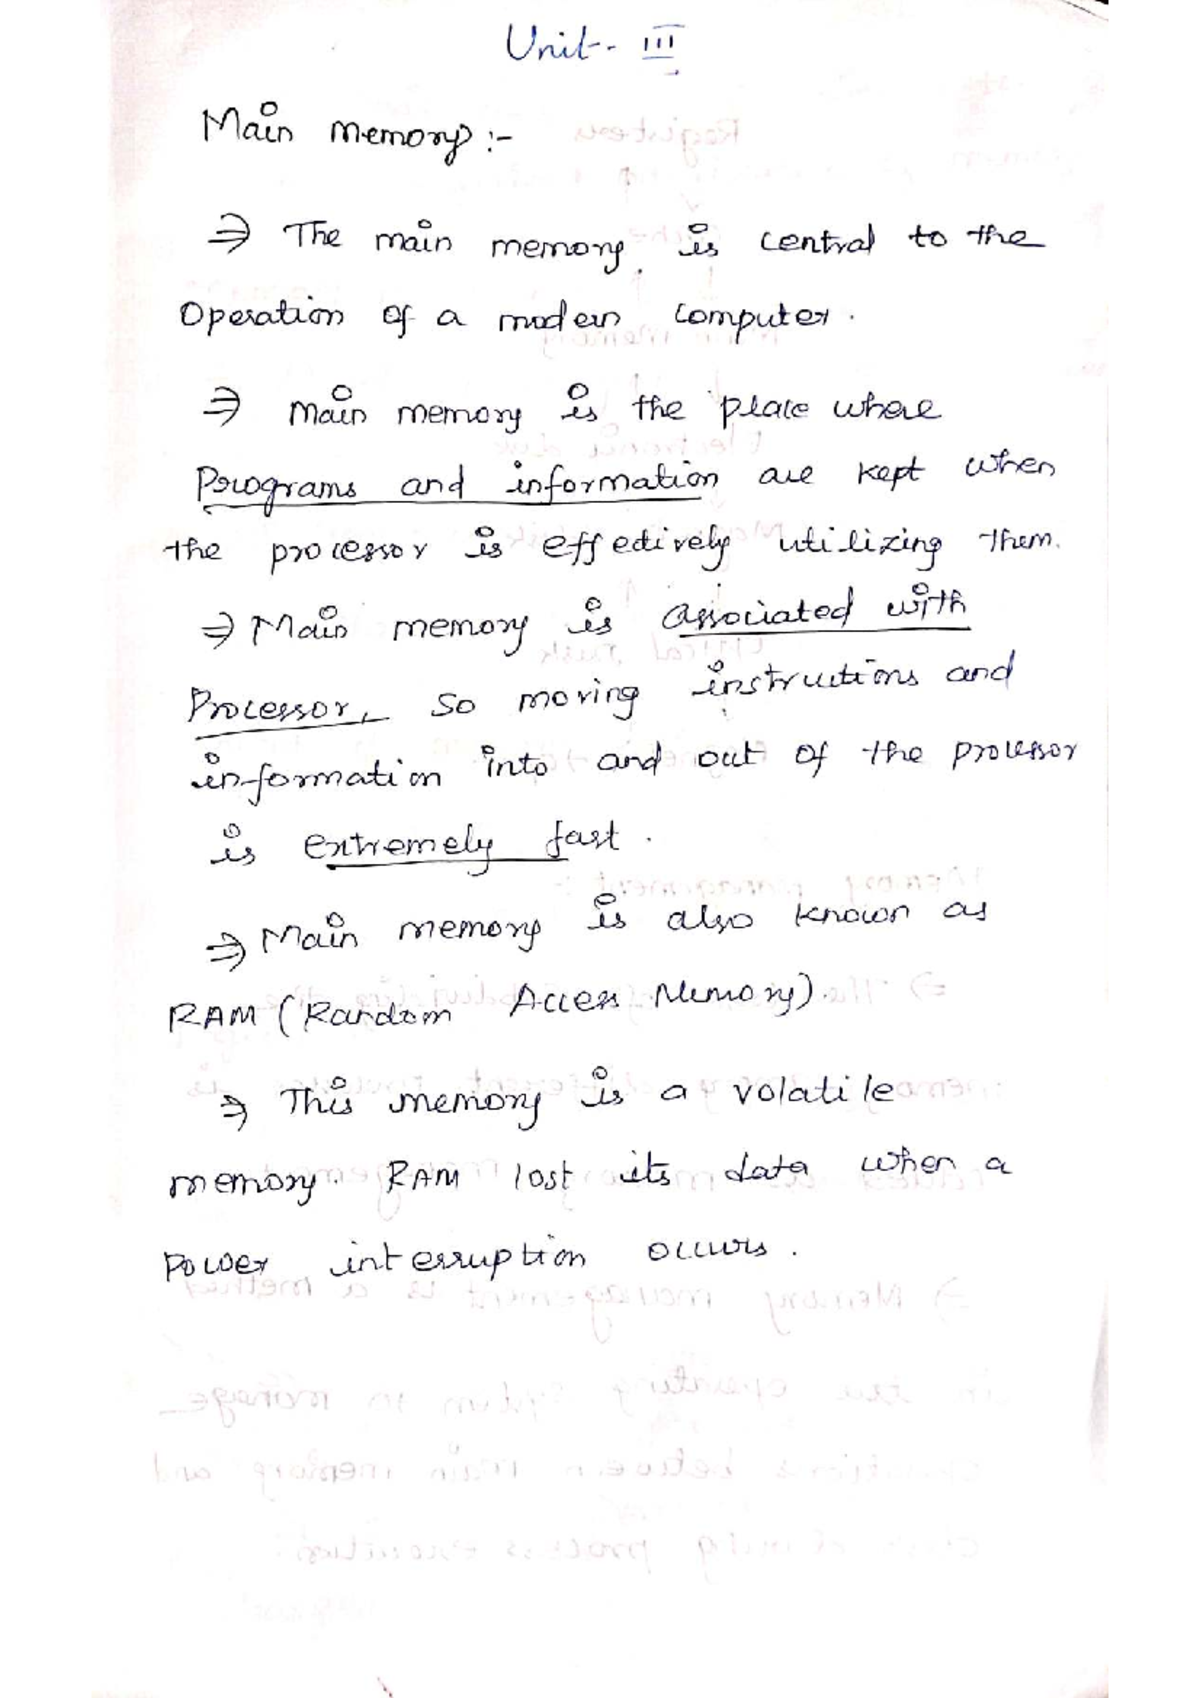 Unit - III
Main memory :-
⇒ The main memory is central to the
Operation of a modern computer.
⇒ Main memory is the place where
Programs and information are kept when
the processor is effectively utilizing them.
⇒ Main memory is associated with
Processor, so moving instructions and
information into and out of the processor
is extremely fast.
⇒ Main memory is also known as
RAM (Random Access Memory).
⇒ This memory is a volatile
memory. RAM lost its data when a
Power interruption occurs.